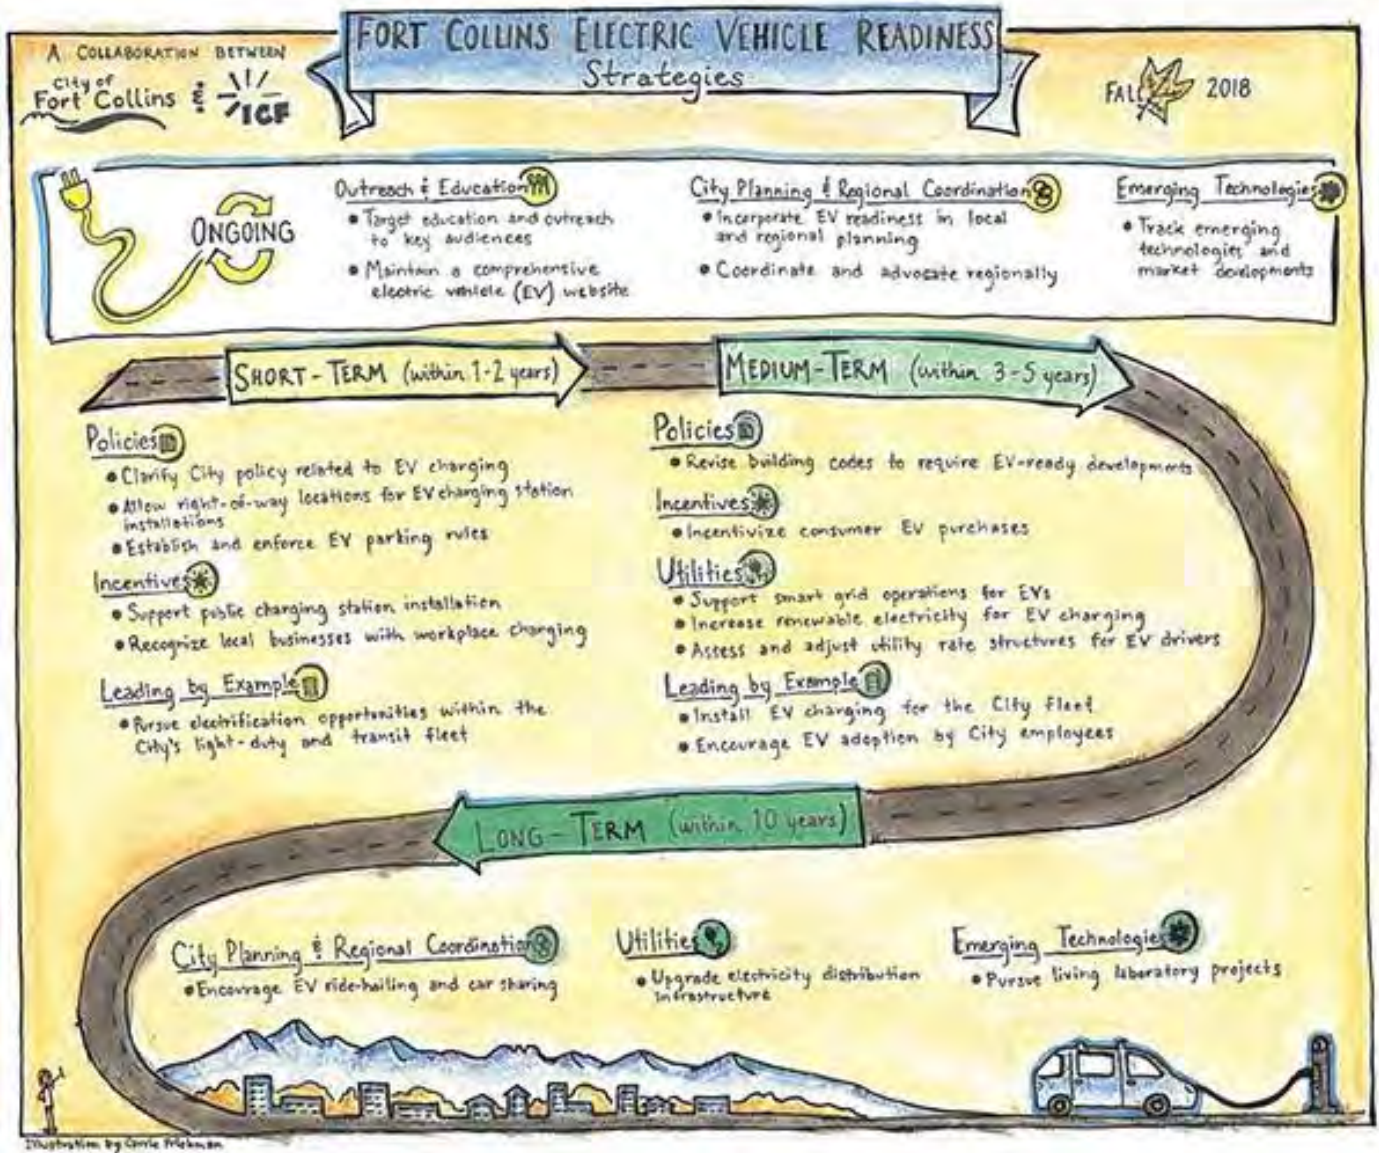 FORT COLLINS ELECTRIC VEHICLE READINESS
Strategies
A COLLABORATION BETWEEN
City of
Fort Collins & ICF
FALL 2018
ONGOING
Outreach & Education
• Target education and outreach
to key audiences
• Maintain a comprehensive
electric vehicle (EV) website
City Planning & Regional Coordination
• Incorporate EV readiness in local
and regional planning
• Coordinate and advocate regionally
Emerging Technologies
• Track emerging
technologies and
market developments
SHORT-TERM (within 1-2 years)
Policies
• Clarify City policy related to EV charging
• Allow right-of-way locations for EV charging station
installations
• Establish and enforce EV parking rules
Incentives
• Support public charging station installation
• Recognize local businesses with workplace charging
Leading by Example
• Pursue electrification opportunities within the
City's light-duty and transit fleet
MEDIUM-TERM (within 3-5 years)
Policies
• Revise building codes to require EV-ready developments
Incentives
• Incentivize consumer EV purchases
Utilities
• Support smart grid operations for EVs
• Increase renewable electricity for EV charging
• Assess and adjust utility rate structures for EV drivers
Leading by Example
• Install EV charging for the City fleet
• Encourage EV adoption by City employees
LONG-TERM (within 10 years)
City Planning & Regional Coordination
• Encourage EV ride-hailing and car sharing
Utilities
• Upgrade electricity distribution
infrastructure
Emerging Technologies
• Pursue living laboratory projects
Illustration by